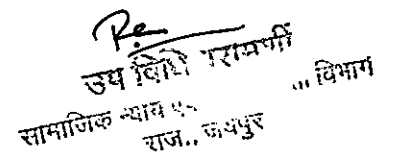 उप विधि परामर्शी
सामाजिक न्याय एवं ... विभाग
राज., जयपुर